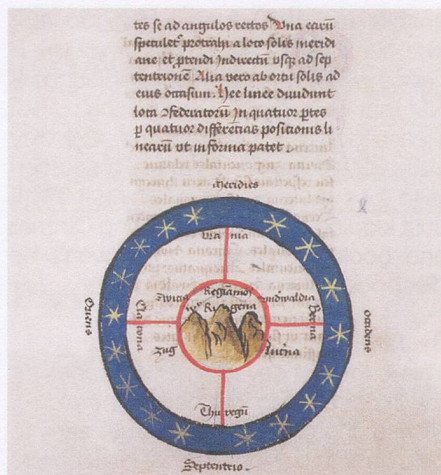 tes se ad angulos rectos Una earū
speculet᷑ protrahi a loco solis meridi
ane et p̱tendi Indirectū usq̨ ad sep
tentrionē Alia vero ab ortu solis ad
eius occasum. Hec linee dividunt
loca ꝯfederatorū In quatuor p̱tes
p̱ quatuor differētias positionis li
nearū ut in forma patet.
Meridies
Ura nia
Switia
undwaldia
Oriens
Clarona
Berna
Occidens
Zug
Lucerna
Thuregū
Septentrio.